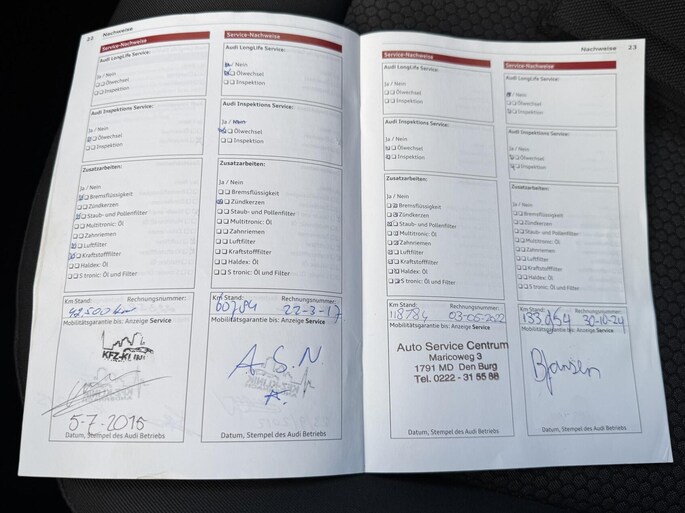 22 Nachweise
Service-Nachweise
Audi LongLife Service:
Ja / Nein
Ölwechsel
Inspektion
Audi Inspektions Service:
Ja / Nein
Ölwechsel
Inspektion
Zusatzarbeiten:
Ja / Nein
Bremsflüssigkeit
Zündkerzen
Staub- und Pollenfilter
Multitronic: Öl
Zahnriemen
Luftfilter
Kraftstofffilter
Haldex: Öl
S tronic: Öl und Filter
Km Stand: Rechnungsnummer:
42500 km
Mobilitätsgarantie bis: Anzeige Service
5-7-2015
Datum, Stempel des Audi Betriebs
Service-Nachweise
Audi LongLife Service:
Ja / Nein
Ölwechsel
Inspektion
Audi Inspektions Service:
Ja / Nein
Ölwechsel
Inspektion
Zusatzarbeiten:
Ja / Nein
Bremsflüssigkeit
Zündkerzen
Staub- und Pollenfilter
Multitronic: Öl
Zahnriemen
Luftfilter
Kraftstofffilter
Haldex: Öl
S tronic: Öl und Filter
Km Stand: Rechnungsnummer:
60784 22-3-17
Mobilitätsgarantie bis: Anzeige Service
A.S.N
Datum, Stempel des Audi Betriebs
Service-Nachweise
Audi LongLife Service:
Ja / Nein
Ölwechsel
Inspektion
Audi Inspektions Service:
Ja / Nein
Ölwechsel
Inspektion
Zusatzarbeiten:
Ja / Nein
Bremsflüssigkeit
Zündkerzen
Staub- und Pollenfilter
Multitronic: Öl
Zahnriemen
Luftfilter
Kraftstofffilter
Haldex: Öl
S tronic: Öl und Filter
Km Stand: Rechnungsnummer:
118784 03-05-2022
Mobilitätsgarantie bis: Anzeige Service
Auto Service Centrum
Maricoweg 3
1791 MD Den Burg
Tel. 0222 - 31 55 88
Datum, Stempel des Audi Betriebs
Nachweise 23
Service-Nachweise
Audi LongLife Service:
Ja / Nein
Ölwechsel
Inspektion
Audi Inspektions Service:
Ja / Nein
Ölwechsel
Inspektion
Zusatzarbeiten:
Ja / Nein
Bremsflüssigkeit
Zündkerzen
Staub- und Pollenfilter
Multitronic: Öl
Zahnriemen
Luftfilter
Kraftstofffilter
Haldex: Öl
S tronic: Öl und Filter
Km Stand: Rechnungsnummer:
133.054 30-10-24
Mobilitätsgarantie bis: Anzeige Service
BJansen
Datum, Stempel des Audi Betriebs